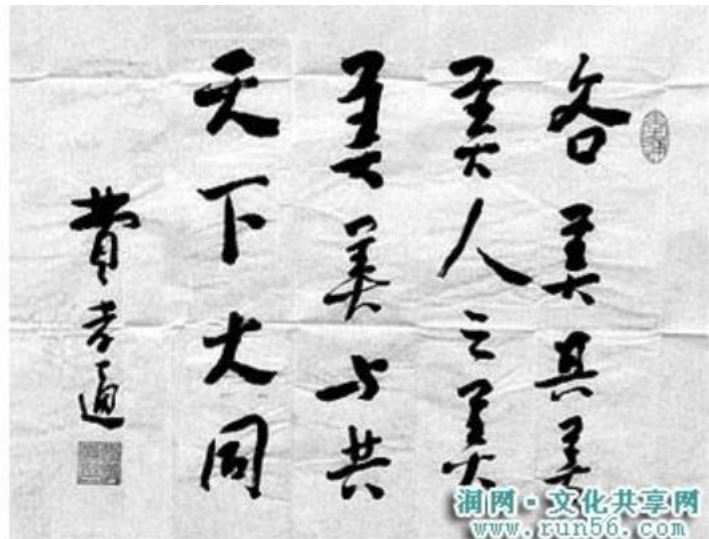 各美其美
美人之美
美美与共
天下大同
費孝通
润网·文化共享网
www.run56.com